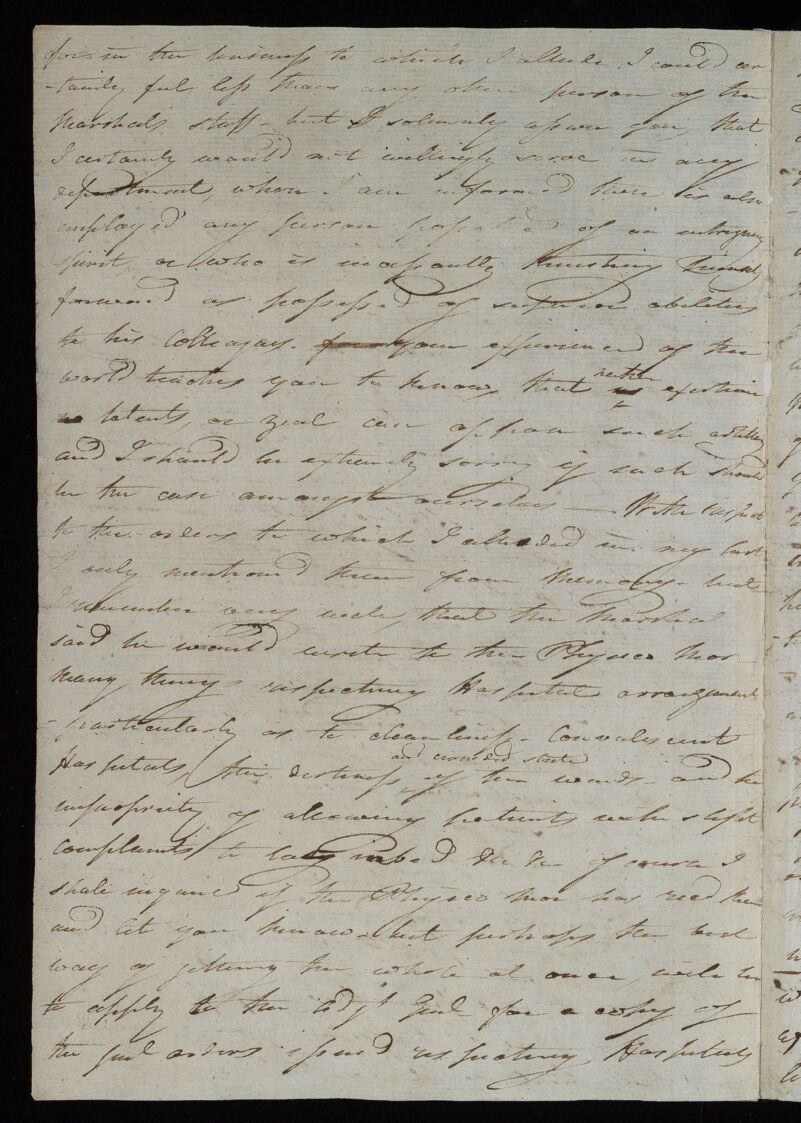 for in the business to which I allude, I could cer
-tainly feel less than any other person of the
Marshal's staff - but I solemnly assure you, that
I certainly would not willingly serve in any
department, where I am informed there is also
employed any person possessed of an intriguing
spirit, or who is incessantly thrusting himself
forward as possessed of superior abilities
to his Colleagues. your experience of the
world teaches you to know, that neither exertion
talents, or zeal can oppose such artillery
and I should be extremely sorry if such should
be the case amongst ourselves — With respect
to the orders to which I alluded in my last
I only mentioned them from memory - but
I remember very well, that the Marshal
said he would write to the Physico Mor
many things respecting Hospital arrangement
- particularly as to cleanliness - Convalescent
Hospitals, the dirtiness and crowded state of the wards - and the
impropriety of allowing patients with slight
complaints to lay in bed &c &c of course I
shall inquire if the Physico Mor has recd them
and let you know - but perhaps the best
way of getting the whole at once, will be
to apply to the Adjt Genl for a copy of
the genl orders issued respecting Hospitals